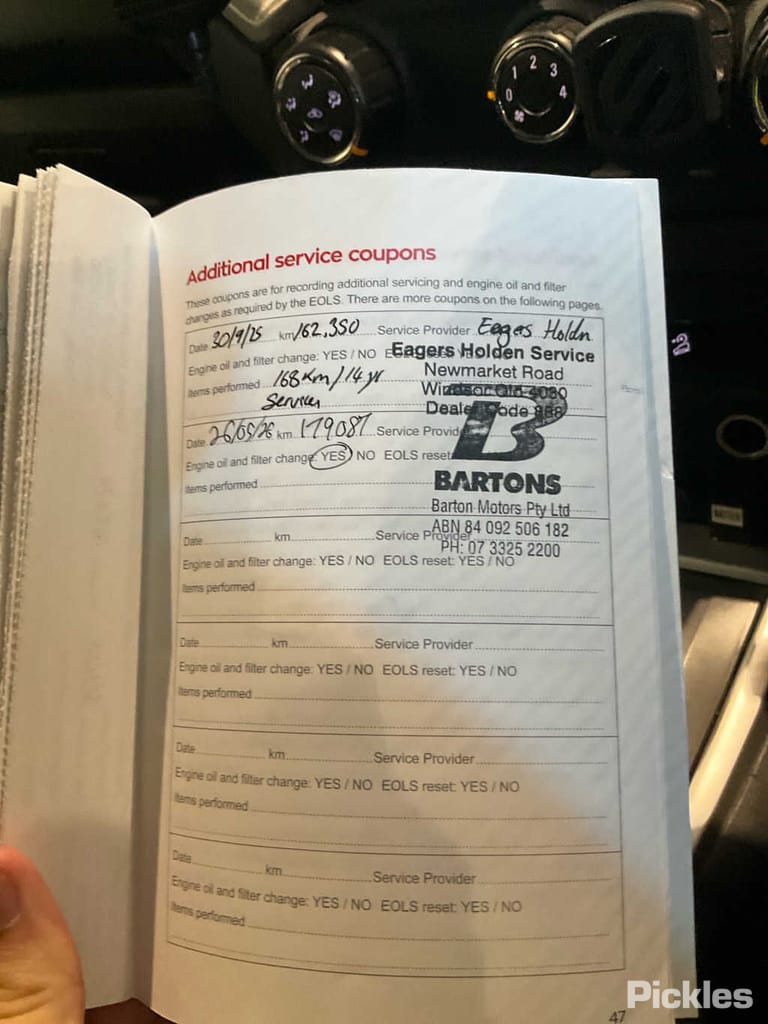 1 2 3
0 4
Additional service coupons
These coupons are for recording additional servicing and engine oil and filter
changes as required by the EOLS. There are more coupons on the following pages.
Date 30/9/25 km 162,350 Service Provider Eagers Holdn
Engine oil and filter change: YES / NO
Eagers Holden Service
Items performed 168Km / 14 yr
Newmarket Road
Services
Windsor Qld 4030
Dealer Code
Date 26/05/26 km 179087 Service Provid
B
Engine oil and filter change: YES / NO EOLS reset
Items performed
BARTONS
Barton Motors Pty Ltd
ABN 84 092 506 182
PH: 07 3325 2200
Date km Service Provider
Engine oil and filter change: YES / NO EOLS reset: YES / NO
Items performed
Date km Service Provider
Engine oil and filter change: YES / NO EOLS reset: YES / NO
Items performed
Date km Service Provider
Engine oil and filter change: YES / NO EOLS reset: YES / NO
Items performed
Date km Service Provider
Engine oil and filter change: YES / NO EOLS reset: YES / NO
Items performed
47
Pickles